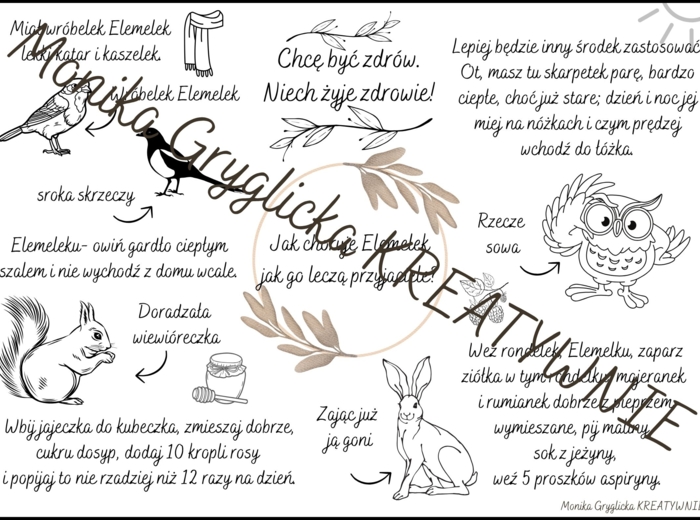 Miał wróbelek Elemelek
lekki katar i kaszelek.
wróbelek Elemelek
Chcę być zdrów.
Niech żyje zdrowie!
Lepiej będzie inny środek zastosować
Ot, masz tu skarpetek parę, bardzo
ciepłe, choć już stare; dzień i noc jej
miej na nóżkach i czym prędzej
wchodź do łóżka.
sroka skrzeczy
Rzecze
sowa
Elemeleku- owiń gardło ciepłym
szalem i nie wychodź z domu wcale.
Jak choruje Elemelek,
jak go leczą przyjaciele?
Doradzała
wiewióreczka
Weź rondelek, Elemelku, zaparz
ziółka w tym rondelku, majeranek
i rumianek dobrze z pieprzem
wymieszane, pij maliny,
sok z jeżyny,
weź 5 proszków aspiryny.
Zając już
ją goni
Wbij jajeczka do kubeczka, zmieszaj dobrze,
cukru dosyp, dodaj 10 kropli rosy
i popijaj to nie rzadziej niż 12 razy na dzień.
Monika Gryglicka KREATYWNIE
Monika Gryglicka KREATYWNI